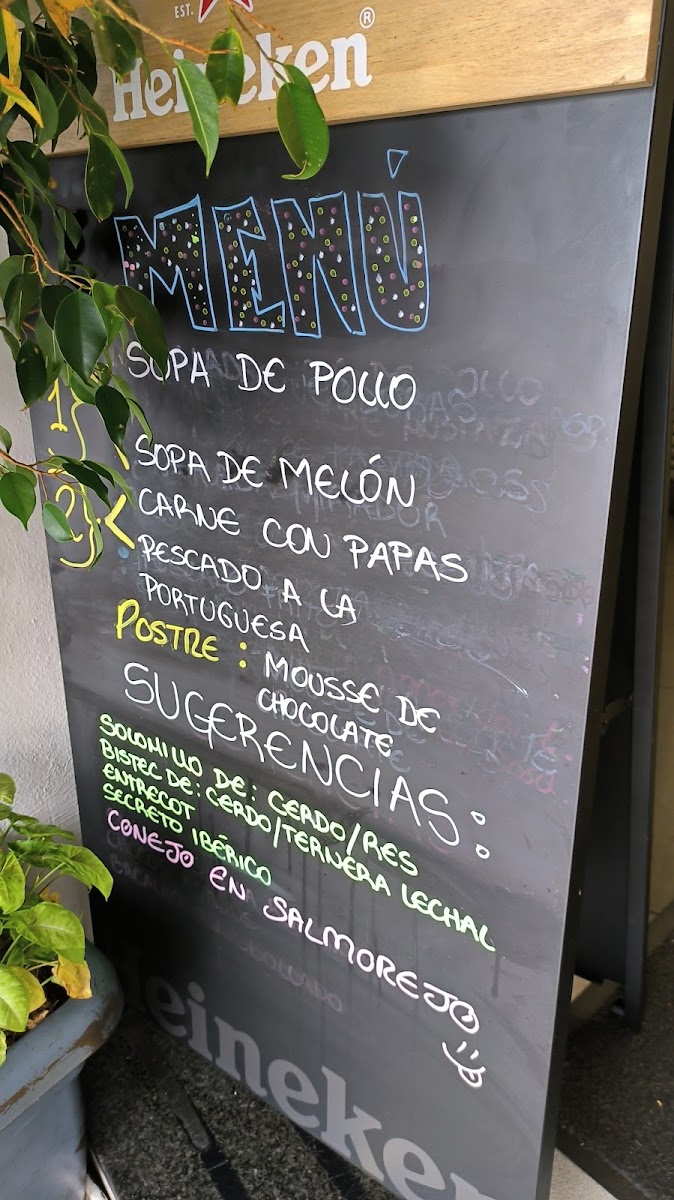 EST.
Heineken®
MENÚ
SOPA DE POLLO
1
SOPA DE MELÓN
2
CARNE CON PAPAS
PESCADO A LA
PORTUGUESA
POSTRE: MOUSSE DE
CHOCOLATE
SUGERENCIAS:
SOLOMILLO DE: CERDO/RES
BISTEC DE: CERDO/TERNERA LECHAL
ENTRECOT
SECRETO IBÉRICO
CONEJO EN SALMOREJO
Heineken